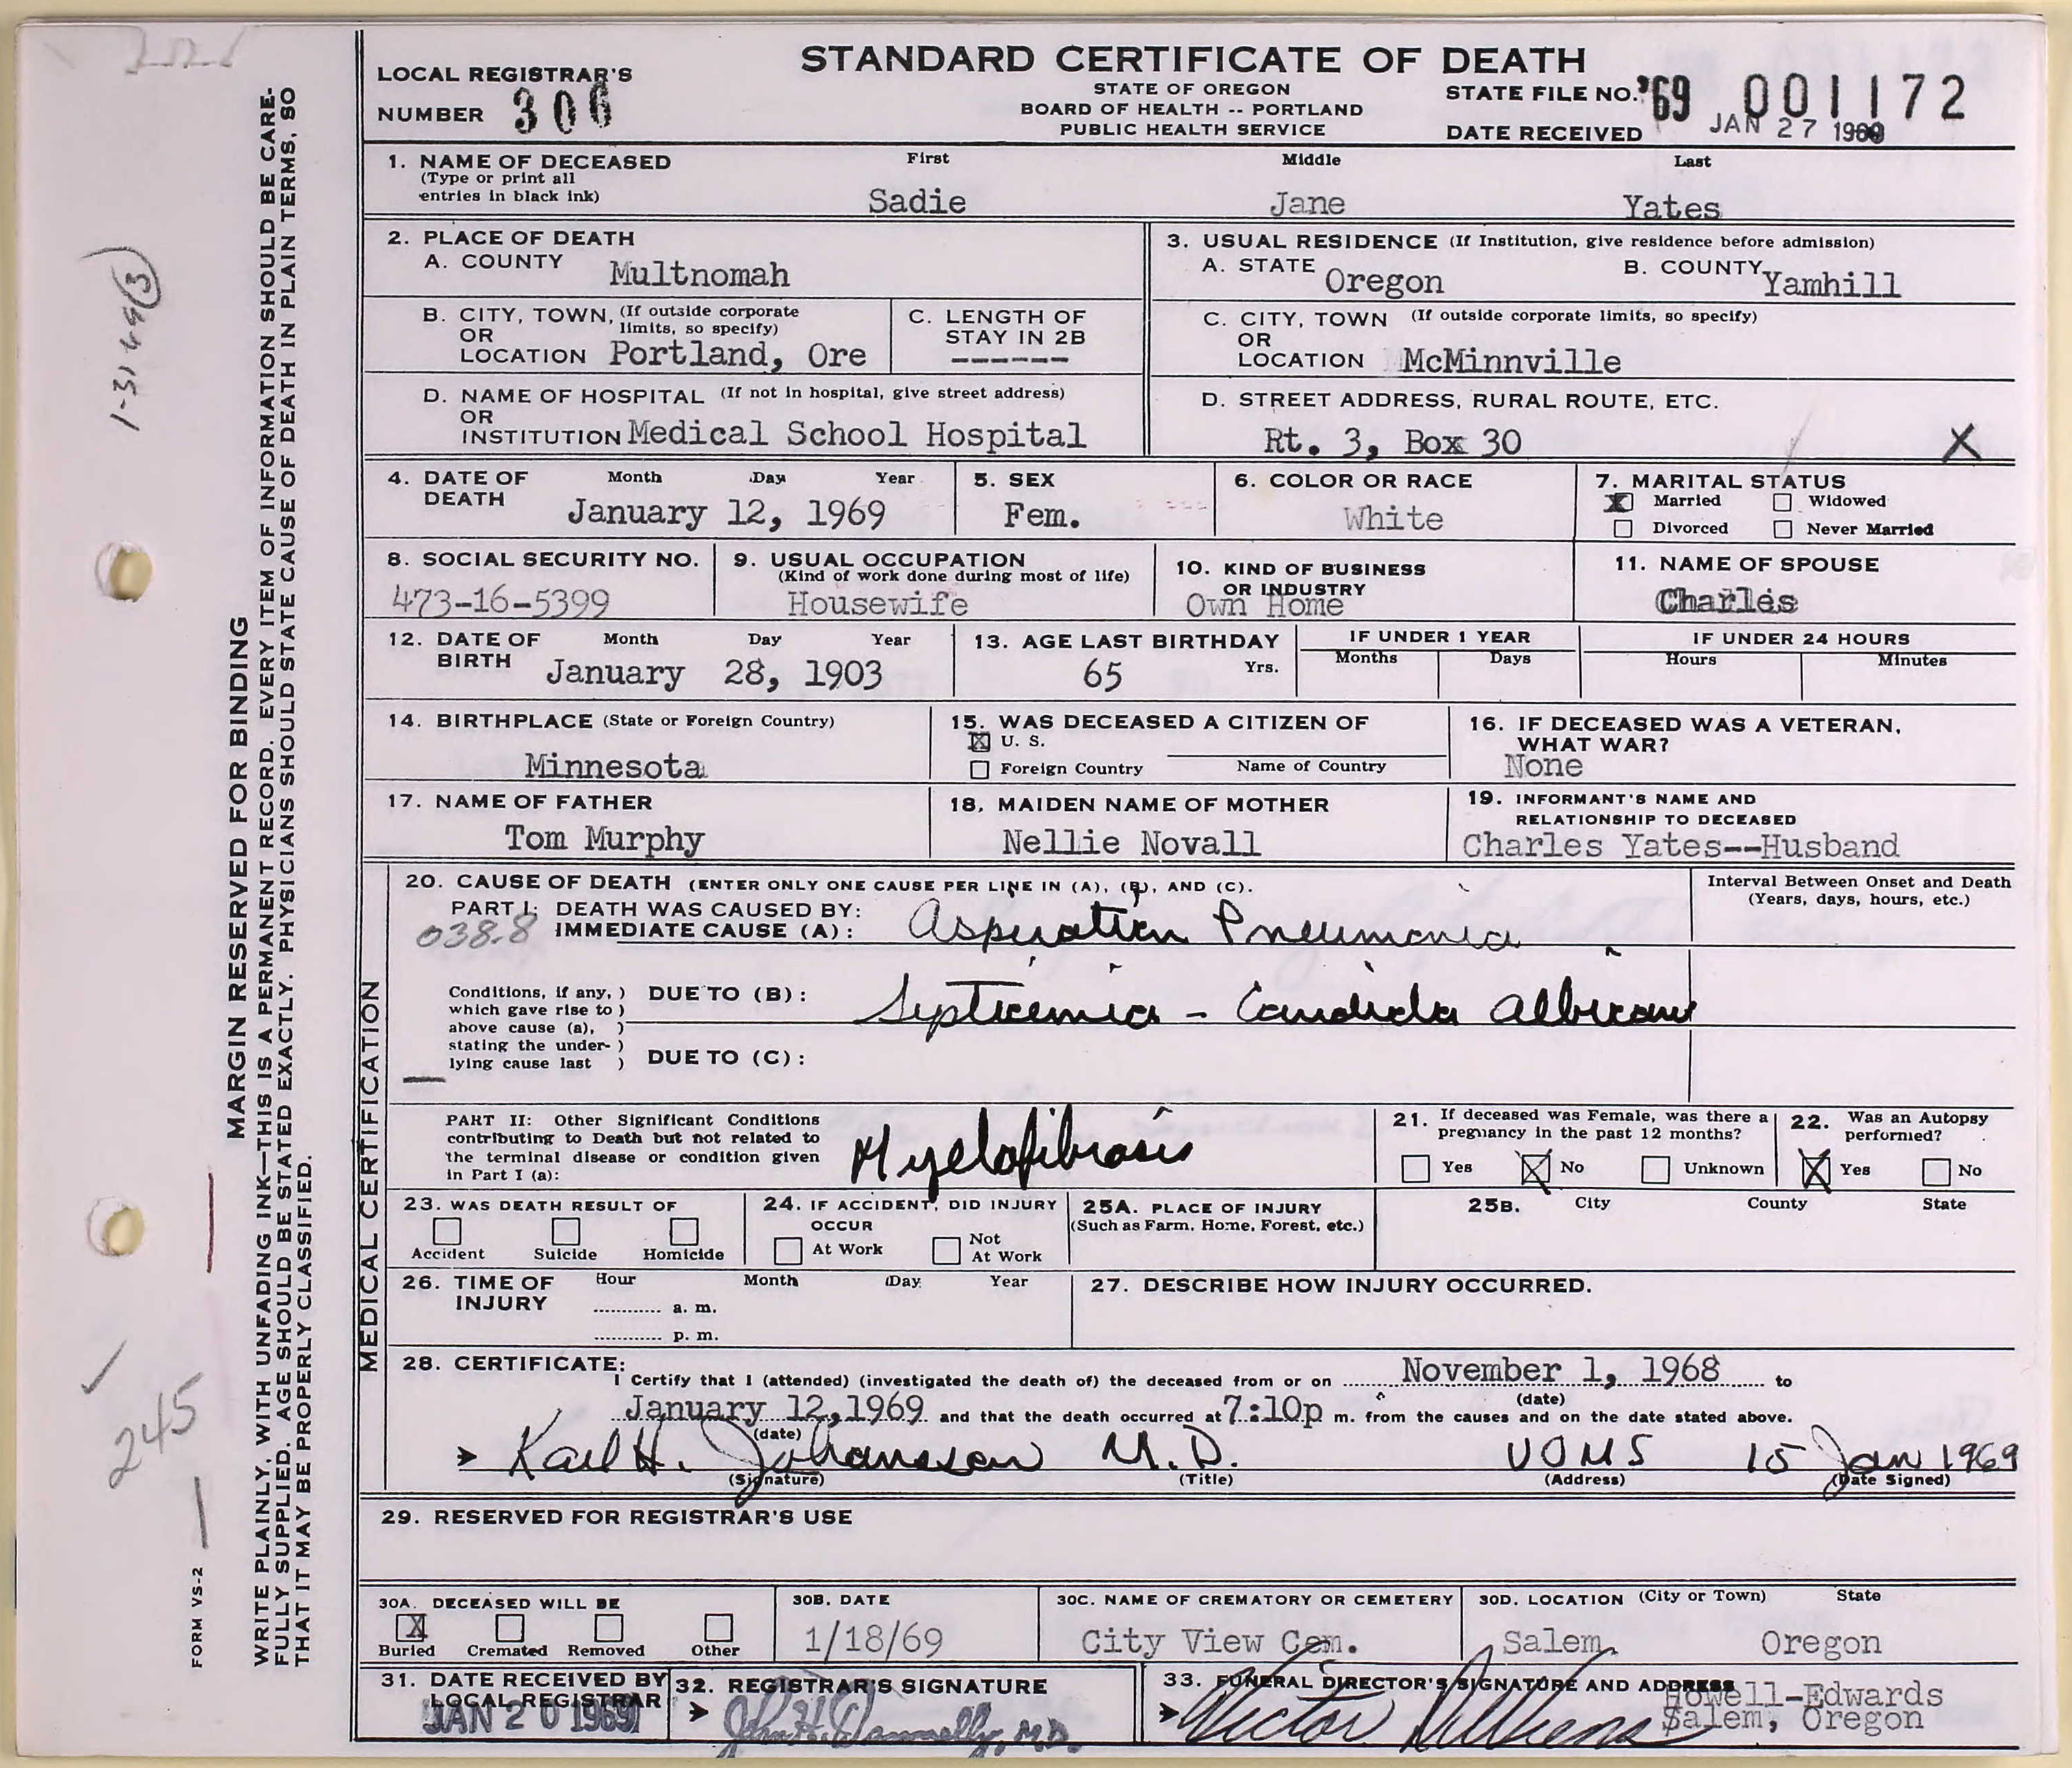 STANDARD CERTIFICATE OF DEATH
STATE OF OREGON
BOARD OF HEALTH -- PORTLAND
PUBLIC HEALTH SERVICE
LOCAL REGISTRAR'S
NUMBER 306
STATE FILE NO. '69 001172
DATE RECEIVED JAN 27 1969
1. NAME OF DECEASED First Middle Last
(Type or print all
entries in black ink)
Sadie Jane Yates
2. PLACE OF DEATH
A. COUNTY Multnomah
B. CITY, TOWN, (If outside corporate
OR limits, so specify)
LOCATION Portland, Ore
C. LENGTH OF
STAY IN 2B
------
D. NAME OF HOSPITAL (If not in hospital, give street address)
OR
INSTITUTION Medical School Hospital
3. USUAL RESIDENCE (If Institution, give residence before admission)
A. STATE Oregon B. COUNTY Yamhill
C. CITY, TOWN (If outside corporate limits, so specify)
OR
LOCATION McMinnville
D. STREET ADDRESS, RURAL ROUTE, ETC.
Rt. 3, Box 30 X
4. DATE OF Month Day Year
DEATH January 12, 1969
5. SEX
Fem.
6. COLOR OR RACE
White
7. MARITAL STATUS
X Married Widowed
Divorced Never Married
8. SOCIAL SECURITY NO.
473-16-5399
9. USUAL OCCUPATION
(Kind of work done during most of life)
Housewife
10. KIND OF BUSINESS
OR INDUSTRY
Own Home
11. NAME OF SPOUSE
Charles
12. DATE OF Month Day Year
BIRTH January 28, 1903
13. AGE LAST BIRTHDAY
65 Yrs.
IF UNDER 1 YEAR
Months Days
IF UNDER 24 HOURS
Hours Minutes
14. BIRTHPLACE (State or Foreign Country)
Minnesota
15. WAS DECEASED A CITIZEN OF
X U. S.
Foreign Country Name of Country
16. IF DECEASED WAS A VETERAN,
WHAT WAR?
None
17. NAME OF FATHER
Tom Murphy
18. MAIDEN NAME OF MOTHER
Nellie Novall
19. INFORMANT'S NAME AND
RELATIONSHIP TO DECEASED
Charles Yates--Husband
MEDICAL CERTIFICATION
20. CAUSE OF DEATH (ENTER ONLY ONE CAUSE PER LINE IN (A), (B), AND (C).
Interval Between Onset and Death
(Years, days, hours, etc.)
PART I: DEATH WAS CAUSED BY:
038.8 IMMEDIATE CAUSE (A): Aspiration Pneumonia
Conditions, if any, )
which gave rise to )
above cause (a), )
stating the under- )
lying cause last )
DUE TO (B): Septicemia - Candida Albicans
DUE TO (C):
PART II: Other Significant Conditions
contributing to Death but not related to
the terminal disease or condition given
in Part I (a):
Myelofibrosis
21. If deceased was Female, was there a
pregnancy in the past 12 months?
Yes X No Unknown
22. Was an Autopsy
performed?
X Yes No
23. WAS DEATH RESULT OF
Accident Suicide Homicide
24. IF ACCIDENT, DID INJURY
OCCUR
At Work Not
At Work
25A. PLACE OF INJURY
(Such as Farm, Home, Forest, etc.)
25B. City County State
26. TIME OF Hour Month Day Year
INJURY
........... a. m.
........... p. m.
27. DESCRIBE HOW INJURY OCCURRED.
28. CERTIFICATE:
I Certify that I (attended) (investigated the death of) the deceased from or on November 1, 1968 to
(date)
January 12,1969 and that the death occurred at 7:10p m. from the causes and on the date stated above.
(date)
Karl H. Johansson M.D. UOMS 15 Jan 1969
(Signature) (Title) (Address) (Date Signed)
29. RESERVED FOR REGISTRAR'S USE
30A. DECEASED WILL BE
X
Buried Cremated Removed Other
30B. DATE
1/18/69
30C. NAME OF CREMATORY OR CEMETERY
City View Cem.
30D. LOCATION (City or Town) State
Salem, Oregon
31. DATE RECEIVED BY
LOCAL REGISTRAR
JAN 20 1969
32. REGISTRAR'S SIGNATURE
John H. Donnelly, M.D.
33. FUNERAL DIRECTOR'S SIGNATURE AND ADDRESS
Howell-Edwards
Salem, Oregon
Victor
MARGIN RESERVED FOR BINDING
WRITE PLAINLY, WITH UNFADING INK—THIS IS A PERMANENT RECORD. EVERY ITEM OF INFORMATION SHOULD BE CARE-
FULLY SUPPLIED. AGE SHOULD BE STATED EXACTLY. PHYSICIANS SHOULD STATE CAUSE OF DEATH IN PLAIN TERMS, SO
THAT IT MAY BE PROPERLY CLASSIFIED.
FORM VS-2
245